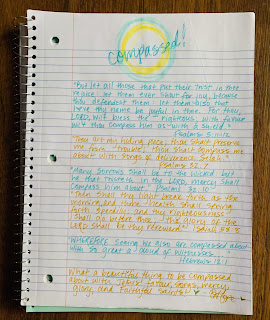 compassed!
"But let all those that put their trust in thee
rejoice: let them ever shout for joy, because
thou defendest them: let them also that
love thy name be joyful in thee. For thou,
LORD, wilt bless the righteous; with favour
wilt thou compass him as with a shield."
Psalms 5:11-12
"Thou art my hiding place; thou shalt preserve
me from trouble; thou shalt compass me
about with songs of deliverance. Selah."
Psalms 32:7
"Many sorrows shall be to the wicked: but
he that trusteth in the LORD, mercy shall
compass him about." Psalms 32:10
"Then shall thy light break forth as the
morning, and thine health shall spring
forth speedily: and thy righteousness
shall go before thee; the glory of the
LORD shall be thy rereward." Isaiah 58:8
"WHEREFORE seeing we also are compassed about
with so great a cloud of witnesses..."
Hebrews 12:1
What a beautiful thing to be compassed
about with Jesus' favour, songs, mercy,
glory, and faithful saints!